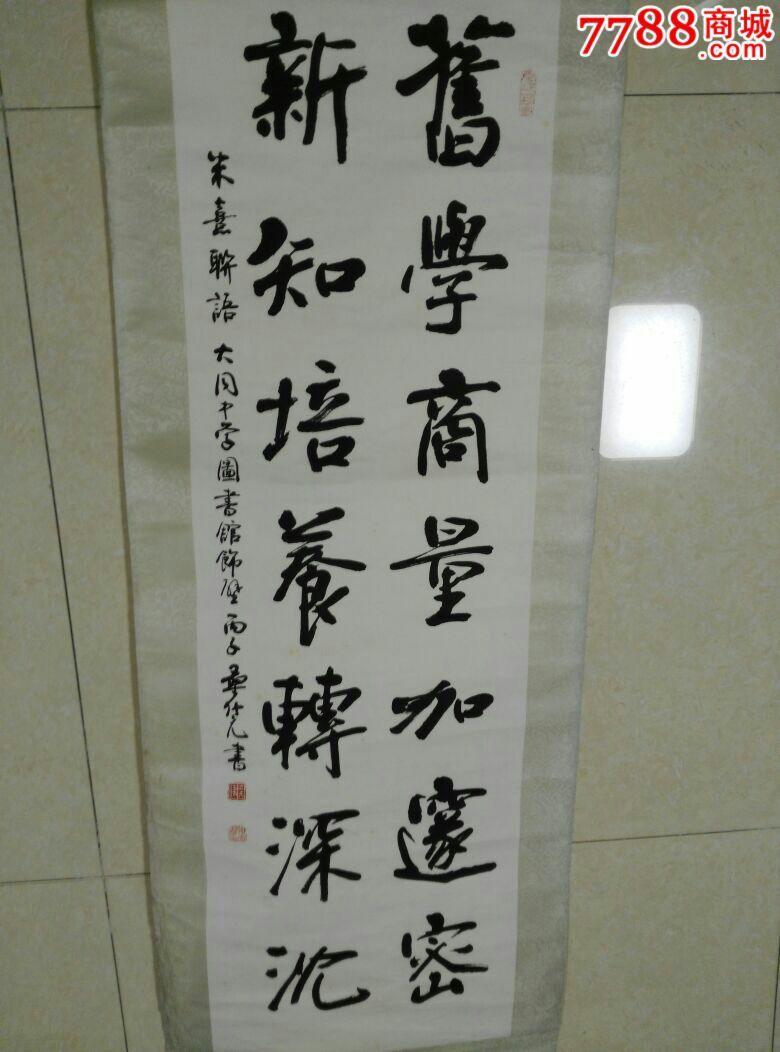 7788商城
.com
舊學商量加邃密
新知培養轉深沈
朱熹聯語 大同中学圖書館飾壁 丙子 書